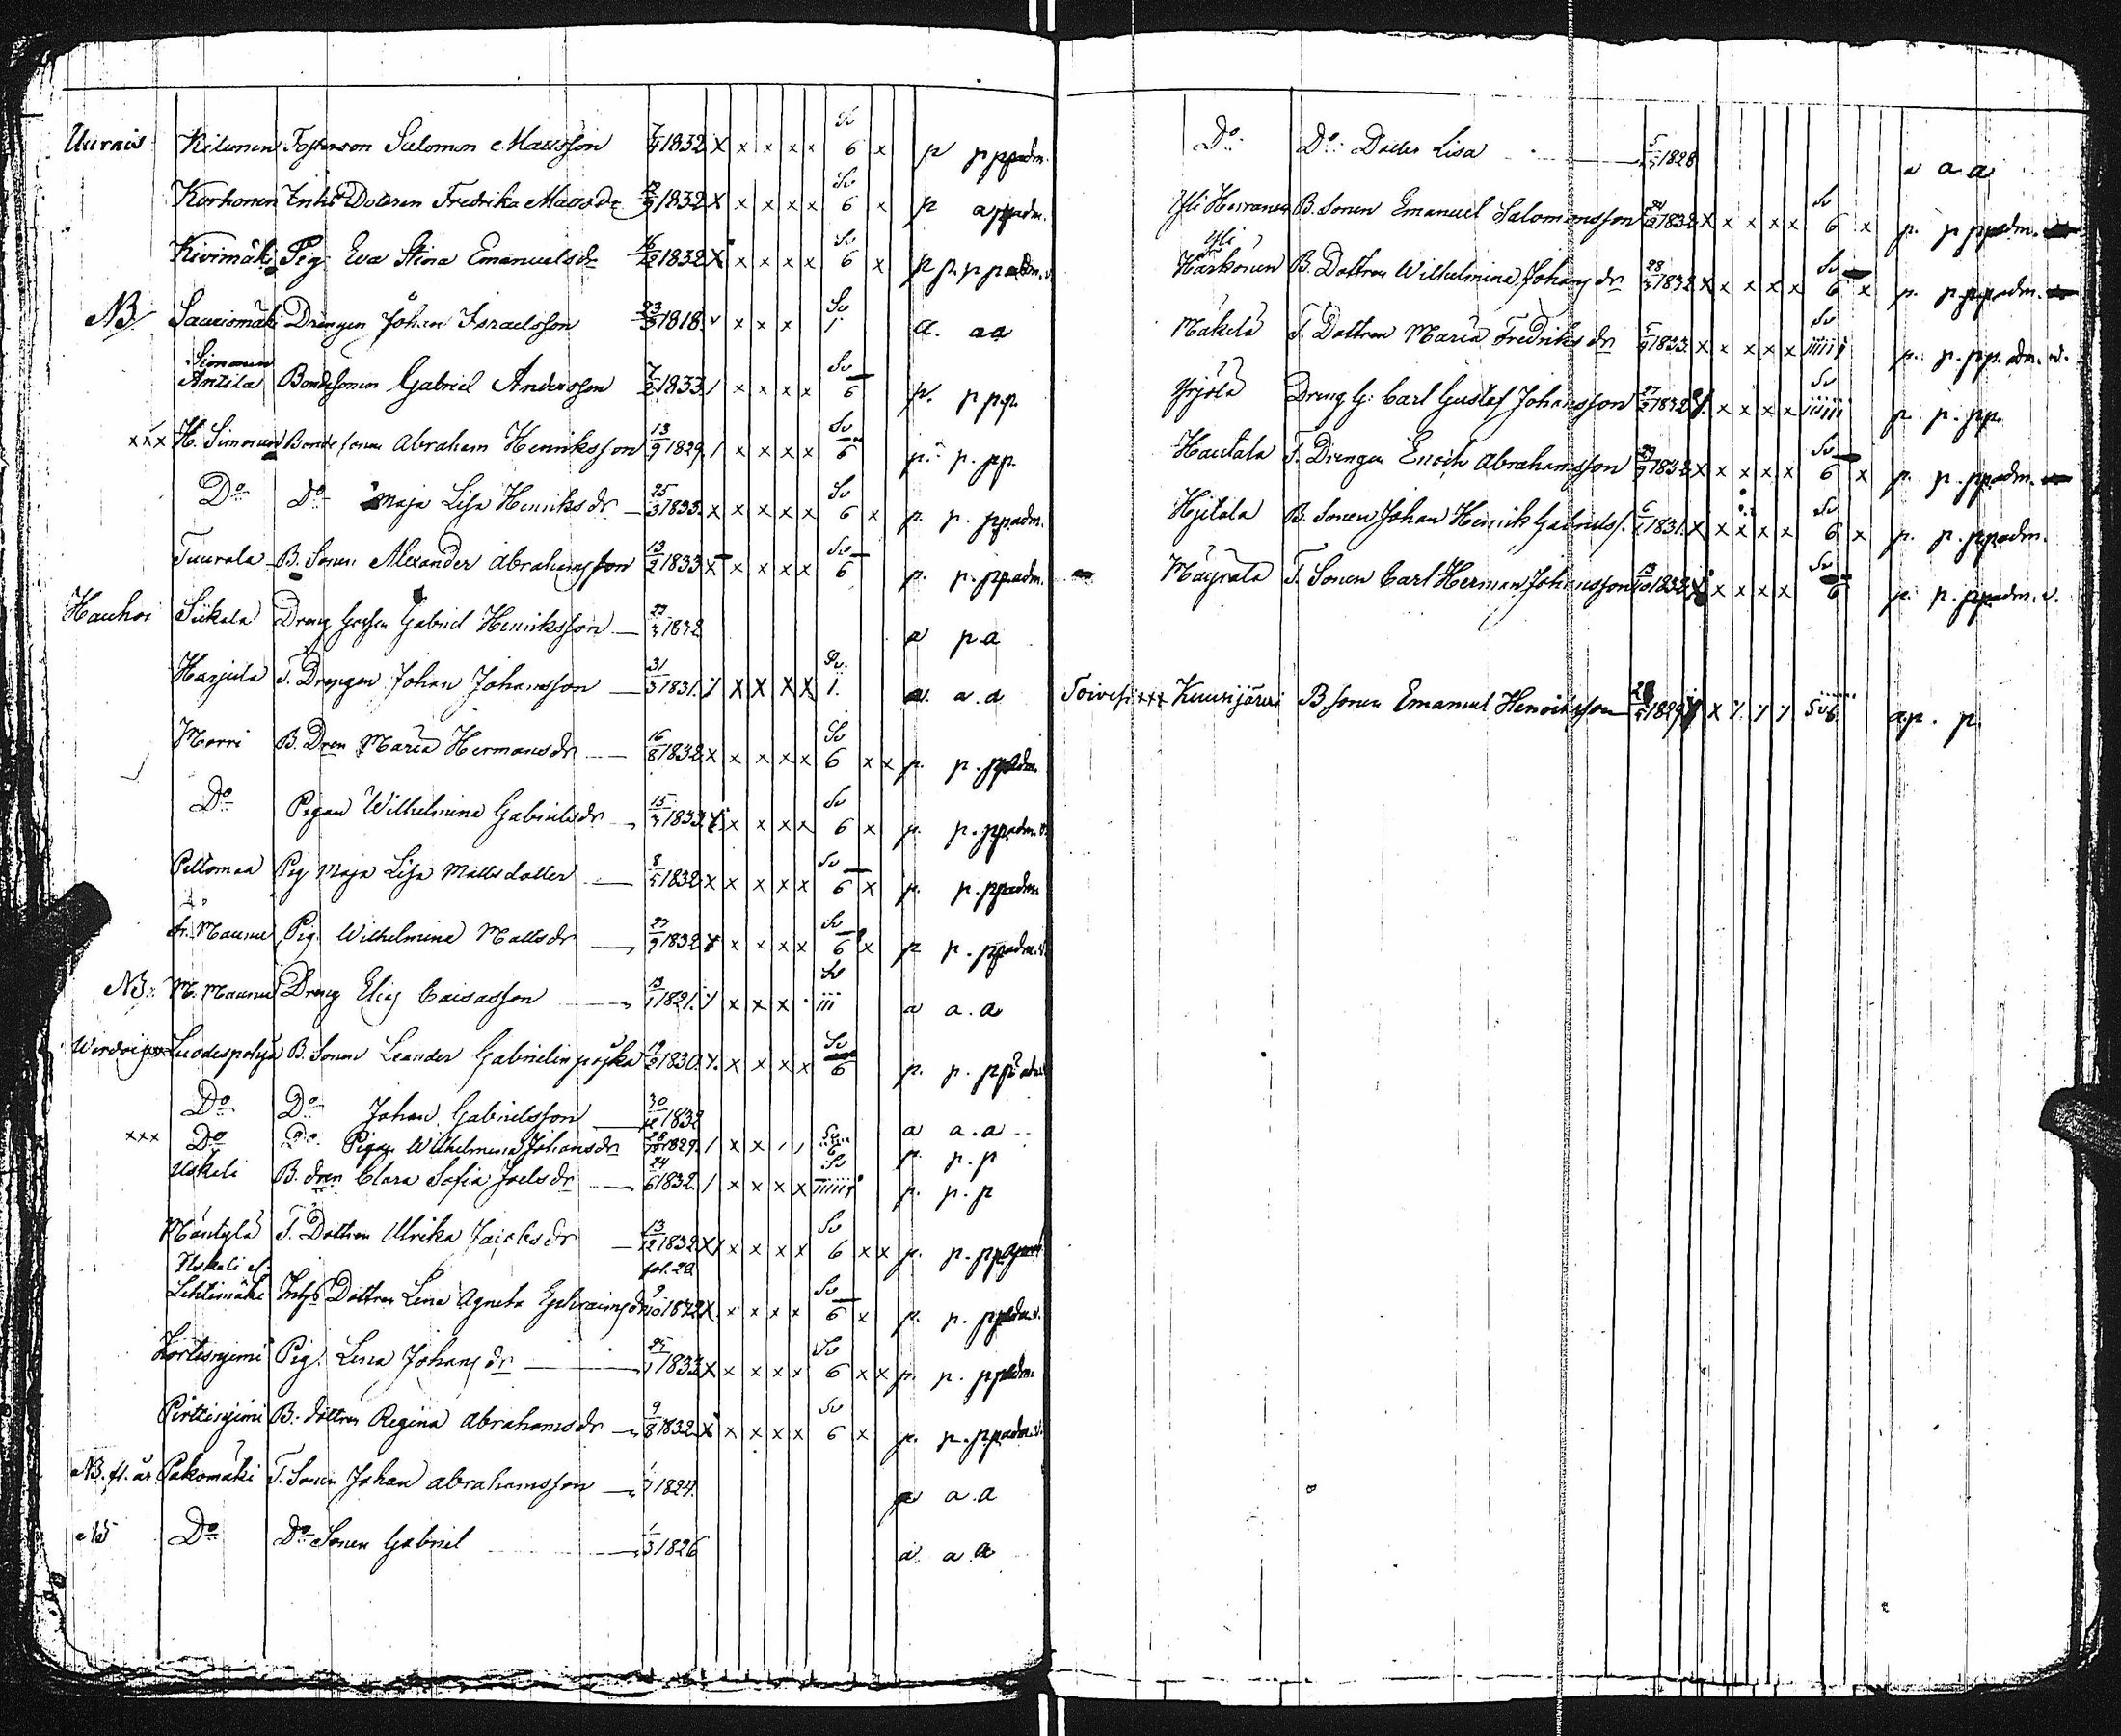 Uurais Kilunen Fosterson Salomon Mattsson 7/4 1832 x x x x x Sv 6 x p p pp adm.
Korhonen Inhs Dottren Fredrika Mattsdr 1832 x x x x x Sv 6 x p a pp adm.
Kivimäki Pig. Eva Stina Emanuelsdr 16/12 1832 x x x x x Sv 6 x p p. p p adm. v
NB Saariomäki Drengen Johan Israelsson 23/5 1818 x x x Sv 1 a. a a
Simonen Antila Bondesonen Gabriel Andersson 7/2 1833 / x x x x Sv 6 p. p p.p.
xxx H. Simonen Bondesonen Abraham Henriksson 13/9 1829 / x x x x Sv 6 p. p. pp.
Do Do Maja Lisa Henriksdr 25/3 1833 x x x x x Sv 6 x p. p. pp adm.
Tuurala B. Sonen Alexander Abrahamsson 13/2 1833 x x x x x Sv 6 p. p. pp adm.
Hauhoi Siikala Dreng Gossen Gabriel Henriksson 1832 a p a
Harjula T. Drengen Johan Johansson 31/3 1831. / x x x x Sv. 1. a. a. a
Morri B. Dren Maria Hermansdr 16/8 1832 x x x x x Sv 6 x x p. p. pp adm.
Do Pigan Wilhelmina Gabrielsdr 15/3 1833 x x x x x Sv 6 x p. p. pp adm. v.
Peltomaa Pig Maja Lisa Matts dotter 8/5 1832 x x x x x Sv 6 x p. p. pp adm
Maunu Pig. Wilhelmina Mattsdr 27/9 1832 x x x x x Sv 6 x p p. pp adm. v.
NB: M. Maunu Dreng Elias Caisasson 13/1 1821. / x x x Sv iii a a. a
Wirdoi xxx Luodespohja B. Sonen Leander Gabrielin pojka 19/2 1830. / x x x x Sv 6 p. p. pp adm
Do Do Johan Gabrielsson 30/12 1832 a a. a
xxx Do Do Pigan Wilhelmina Johansdr 1829. / x x / / Sv 6 p. p. p
Uskeli B. dren Clara Sofia Joelsdr 24/6 1832 / x x x x Sv iiiii p. p. p
Mäntylä T. Dottren Ulrika Jacobsdr 13/12 1832 x x x x x Sv 6 x x p. p. pp adm
Uskeli cf. fol. 20
Lehtimäki Inhs Dottren Lena Agneta Ephraimsdr 9/10 1832 x x x x x Sv 6 x p. p. pp adm. v.
Kortesnjemi Pig. Lena Johansdr 25/1 1833 x x x x x Sv 6 x x p. p. pp adm.
Pirttinjemi B. dottren Regina Abrahamsdr 9/8 1832 x x x x x Sv 6 x p. p. pp adm. v.
NB. fl. år Pakomäki T. Sonen Johan Abrahamsson 1/7 1824. p a. a
NB Do Do Sonen Gabriel 1/3 1826 a. a a
Do Do Dotter Lisa 1828 a a. a
Yli Herranen B. Sonen Emanuel Salomonsson 1832 x x x x x Sv 6 x p. p. pp adm.
Yli
Härkönen B. Dottren Wilhelmina Johansdr 28/3 1832 x x x x x Sv 6 x p. p. pp adm.
Mäkelä T. Dottren Maria Fredriksdr 1833. x x x x x Sv iiiii p. p. pp. adm. v.
Yrjölä Dreng G. Carl Gustaf Johansson 27/2 1832 / x x x x Sv iiiii p. p. pp.
Hautala T. Drengen Enoch Abrahamsson 29/9 1832 x x x x x Sv 6 x p. p. pp adm.
Hjitola B. Sonen Johan Henrik Gabrielss. 6/1 1831. x x x x x Sv 6 x p. p. pp adm.
Mäyrälä T. Sonen Carl Herman Johansson 13/10 1832 x x x x x Sv 6 p. p. pp adm. v.
Toivesi xxx Kuusijärvi B Sonen Emanuel Henriksson 1829 x / / / Sv 6 a p. p.